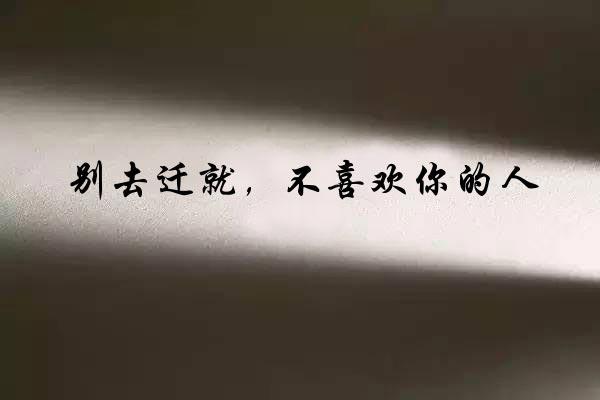 别去迁就，不喜欢你的人